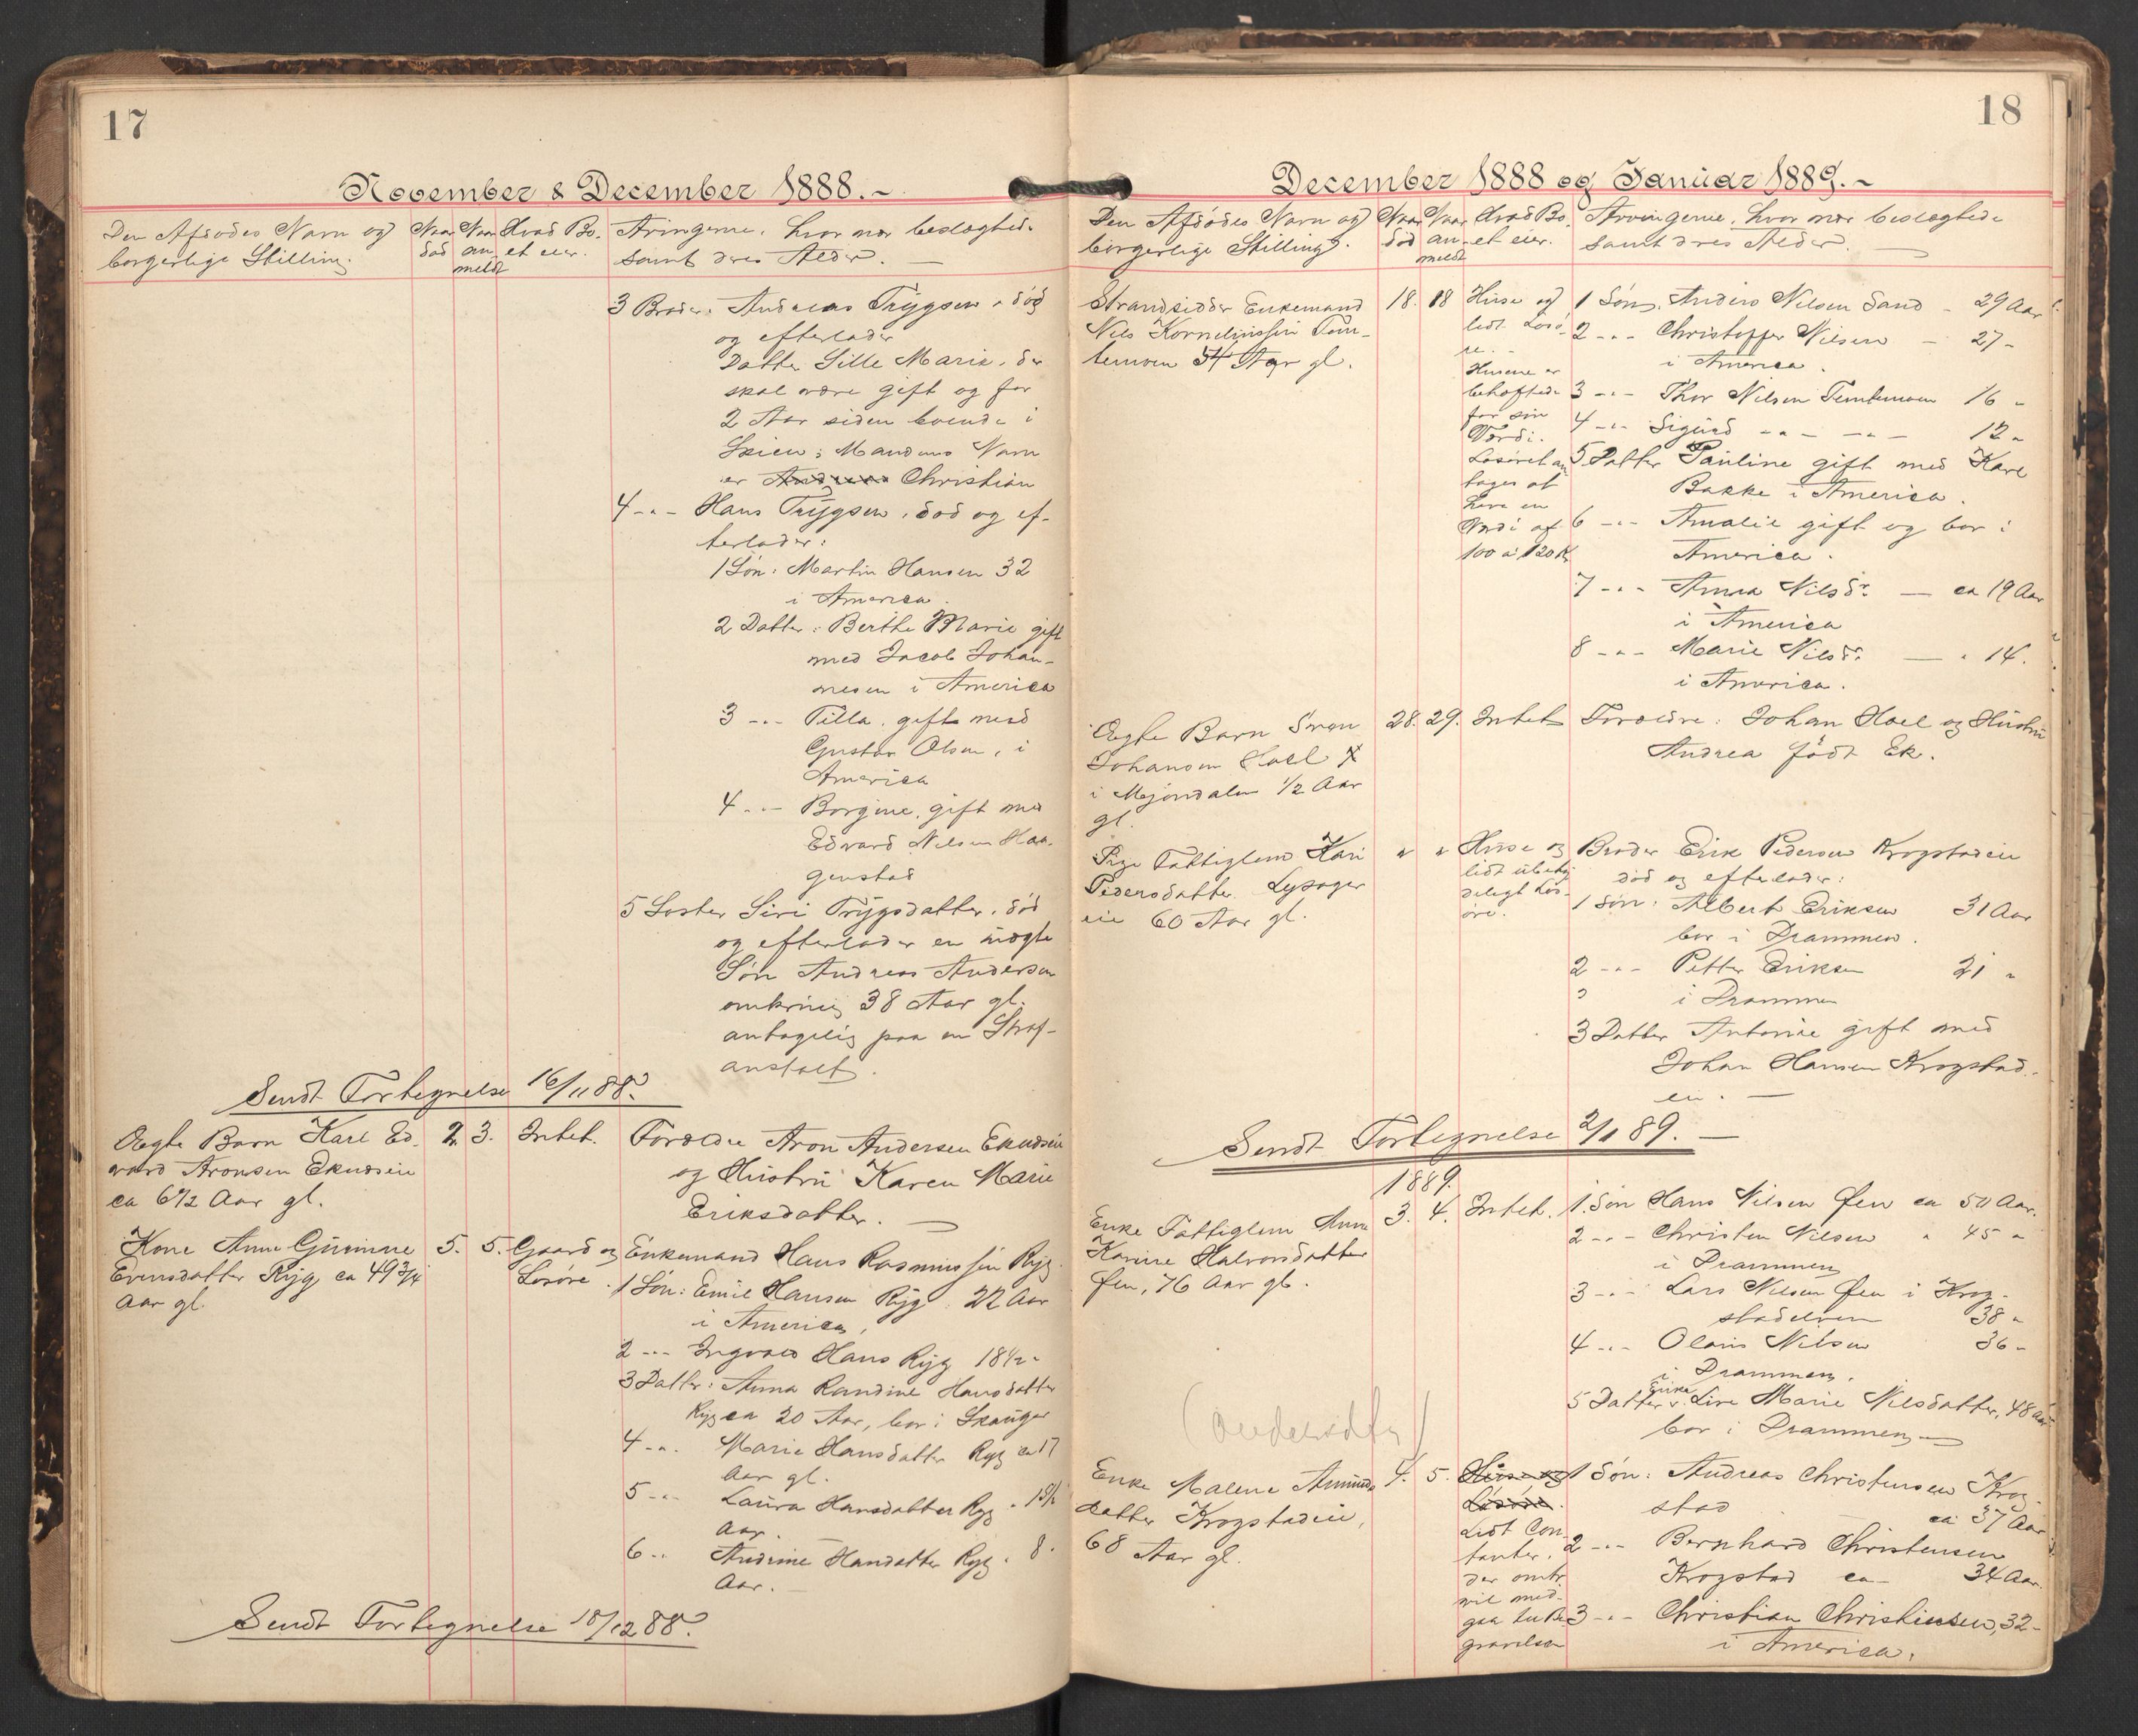 17
November & December 1888.-
Den Afdødes Navn og
borgerlige Stilling.
Naar
død
Naar
an-
meldt
Hvad Bo-
et eier.
Arvingerne, hvor nær beslægtede
samt dres Alder. —
3 Broder: Andreas Trygsen, død
og efterlader
Datter Sille Marie, der
skal være gift og for
2 Aar siden boende i
Skien; Mandens Navn
er Christian
4 -"- Hans Trygsen, død og ef-
terlader:
1 Søn: Martin Hansen 32
i America.
2 Datter: Berthe Marie gift
med Jacob Johan-
nesen i America
3 -"- Tilla, gift med
Gustav Olsen, i
America
4 -"- Borgine, gift med
Edvard Nilsen Haa-
genstad
5 Søster Siri Trygsdatter, død
og efterlader en uægte
Søn Andreas Andersen
omkring 38 Aar gl.
antagelig paa en Straf-
anstalt.
Sendt Fortegnelse 16/11 88.
Ægte Barn Karl Ed-
vard Aronsen Eknæseie
ca 6 1/2 Aar gl.
2. 3. Intet.
Forældre Aron Andersen Eknæseie
og Hustru Karen Marie
Eriksdatter. —
Kone Anne Gurine
Evensdatter Ryg, ca 49 3/4
Aar gl.
5. 5. Gaard og
Løsøre.
Enkemand Hans Rasmussen Ryg.
1 Søn: Emil Hansen Ryg. 22 Aar
i America,
2 -"- Ingvald Hans Ryg 18 1/2 "
3 Datter: Anna Randine Hansdatter
Ryg ca 20 Aar, bor i Skauger
4 -"- Marie Hansdatter Ryg ca 17
Aar gl.
5 -"- Laura Hansdatter Ryg "
Aar.
6 -"- Andrine Hansdatter Ryg " 8.
Aar. -
Sendt Fortegnelse 10/12 88.
18
December 1888 og Januar 1889.-
Den Afdødes Navn og
borgerlige Stilling.
Naar
død
Naar
an-
meldt
Hvad Bo-
et eier.
Arvingerne, hvor nær beslægtede
samt dres Alder. —
Strandsidder Enkemand
Nils Kornelinssen Tem-
temoen 54 Aar gl.
18. 18
Huse og
lidt Løsø-
re. -
Husene er
behæftede
for sin
Værdi.
Løsøret an-
tages at
have en
Værdi af
100 à 120 Kr
1 Søn. Anders Nilsen Sand - 29 Aar
2 -"- Christoffer Nilsen - 27 -
i America.
3 -"- Thor Nilsen Temtemoen 16 "
4 -"- Sigurd -"- -"- 12 "
5 Datter Pauline gift med Karl
Bakke i America.
6 -"- Amalie gift og bor i
America.
7 -"- Anna Nilsdr. — ca 19 Aar
i America
8 -"- Marie Nilsdr. — " 14.
i America.
Ægte Barn Søren
Johansen Hoel
i Mjøndalen 1/2 Aar
gl.
28. 29. Intet
Forældre: Johan Hoel og Hustru
Andrea født Ek.
Pige Fattiglem Kari
Pedersdatter Lysager
eie 60 Aar gl.
" " Huse og
lidt ubety-
deligt Løs-
øre.
Broder Erik Pedersen Krogstadeie
død og efterlader:
1 Søn: Albert Eriksen 31 Aar
bor i Drammen.
2 -"- Petter Eriksen 21 "
i Drammen
3 Datter Antonie gift med
Johan Hansen Krogstad-
en. —
Sendt Fortegnelse 2/1 89. —
1889.
Enke Fattiglem Anne
Karine Halvorsdatter
Øen, 76 Aar gl.
3. 4. Intet.
1. Søn Hans Nilsen Øen ca 50 Aar.
2 -"- Christen Nilsen " 45 "
i Drammen
3 -"- Lars Nilsen Øen i Krog-
stadelven 38 "
4 -"- Olaus Nilsen 36 -
i Drammen.
Enke
5 Datter Live Marie Nilsdatter, 48 Aar
bor i Drammen. —
(Andersdtr)
Enke Malene Amunds
datter Krogstadeie,
68 Aar gl.
4. 5. Huse og
Løsøre.
Lidt Con-
tanter,
der omtr.
vil med-
gaa til Be-
gravelsen
1 Søn: Andreas Christensen Krog-
stad ca 37 Aar
2 -"- Bernhard Christensen
Krogstad ca - 34 Aar.
3 -"- Christian Christensen, 32 -
i America.